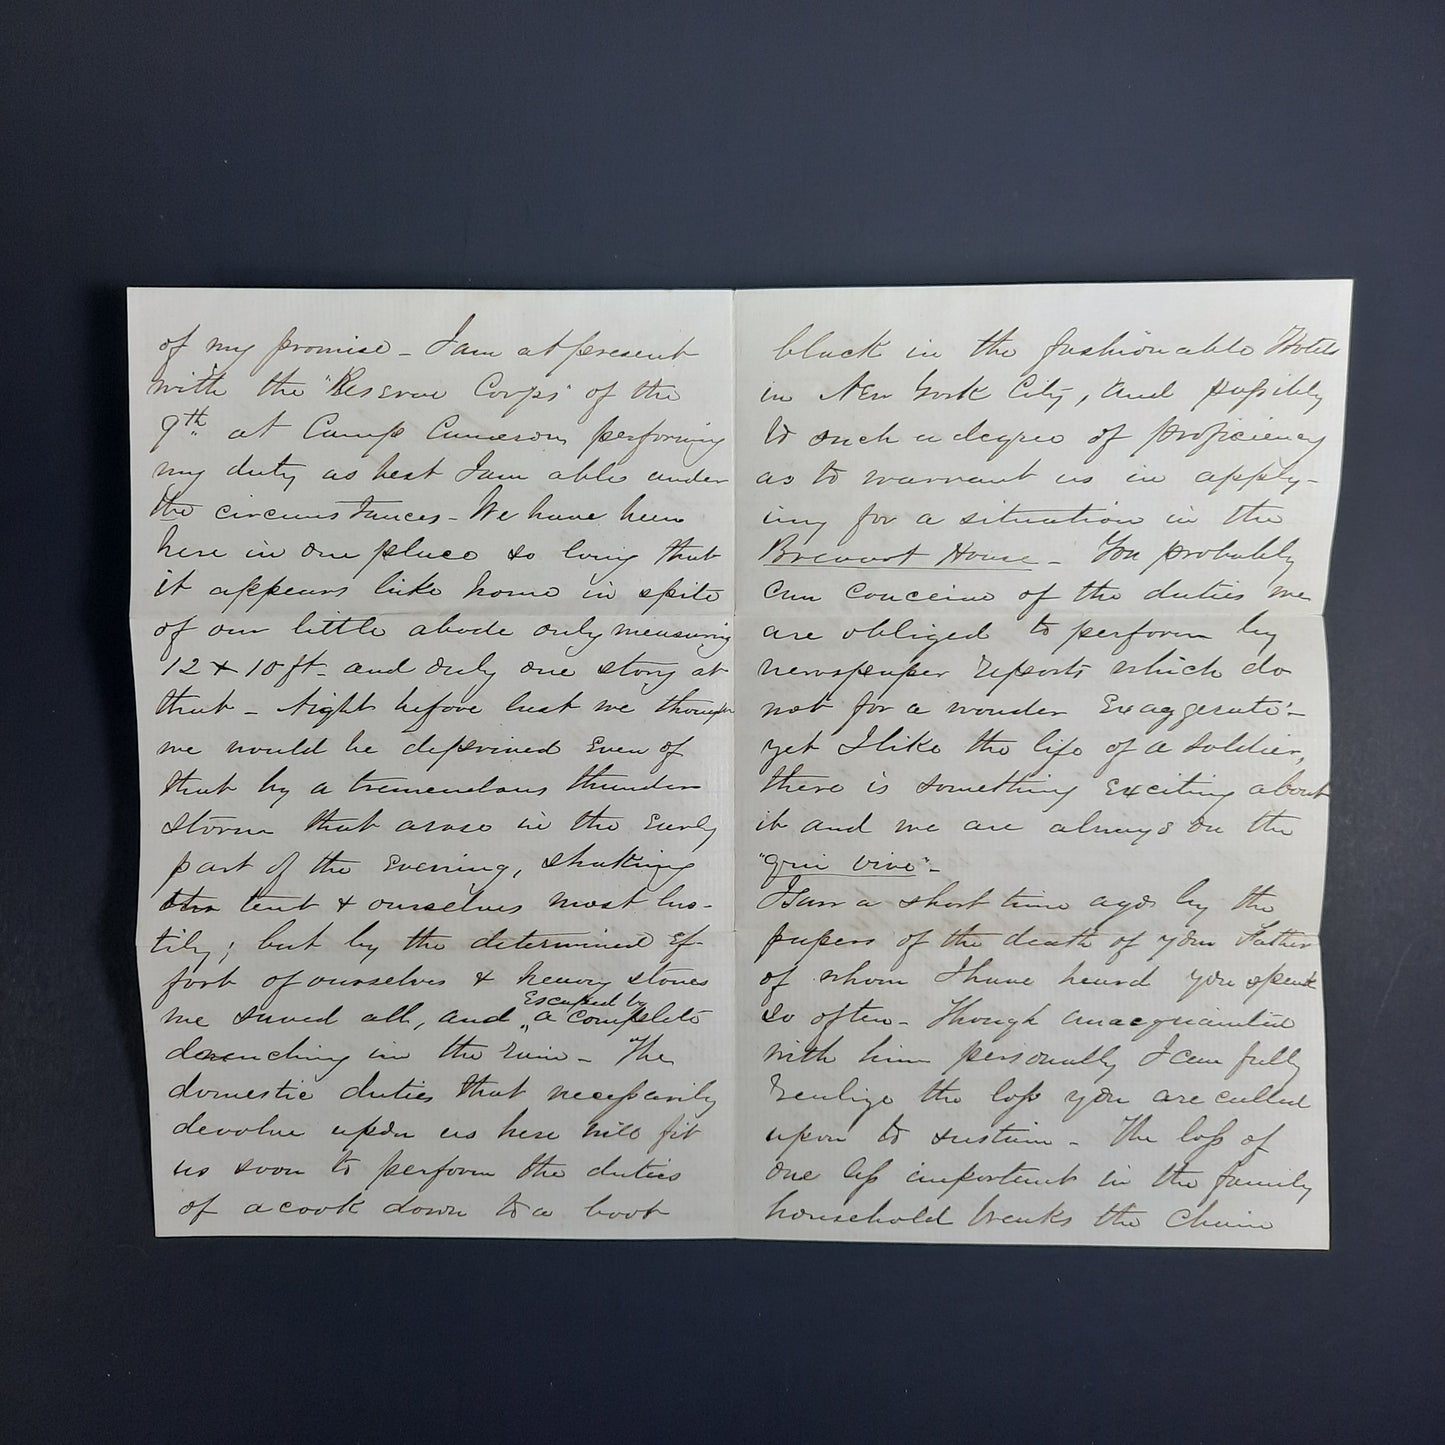 of my promise - I am at present
with the "Reserve Corps" of the
9th at Camp Cameron performing
my duty as best I am able under
the circumstances - We have been
here in one place so long that
it appears like home in spite
of our little abode only measuring
12 x 10 ft - and only one story at
that - Night before last we thought
we would be deprived even of
that by a tremendous thunder
storm that arose in the early
part of the evening, shaking
the tent & ourselves most lus-
tily; but by the determined ef-
fort of ourselves & heavy stones
we saved all, and escaped by a complete
drenching in the rain - The
domestic duties that necessarily
devolve upon us here will fit
us soon to perform the duties
of a cook down to a boot
black in the fashionable Hotels
in New York City, and possibly
to such a degree of proficiency
as to warrant us in apply-
ing for a situation in the
Brevoort House - You probably
can conceive of the duties we
are obliged to perform by
newspaper reports which do
not for a wonder Exaggerate -
yet I like the life of a soldier,
there is something exciting about
it and we are always on the
"qui vive" -
I saw a short time ago by the
papers of the death of your Father
of whom I have heard you speak
so often - Though unacquainted
with him personally I can fully
realize the loss you are called
upon to sustain - The loss of
one less important in the family
household breaks the chain